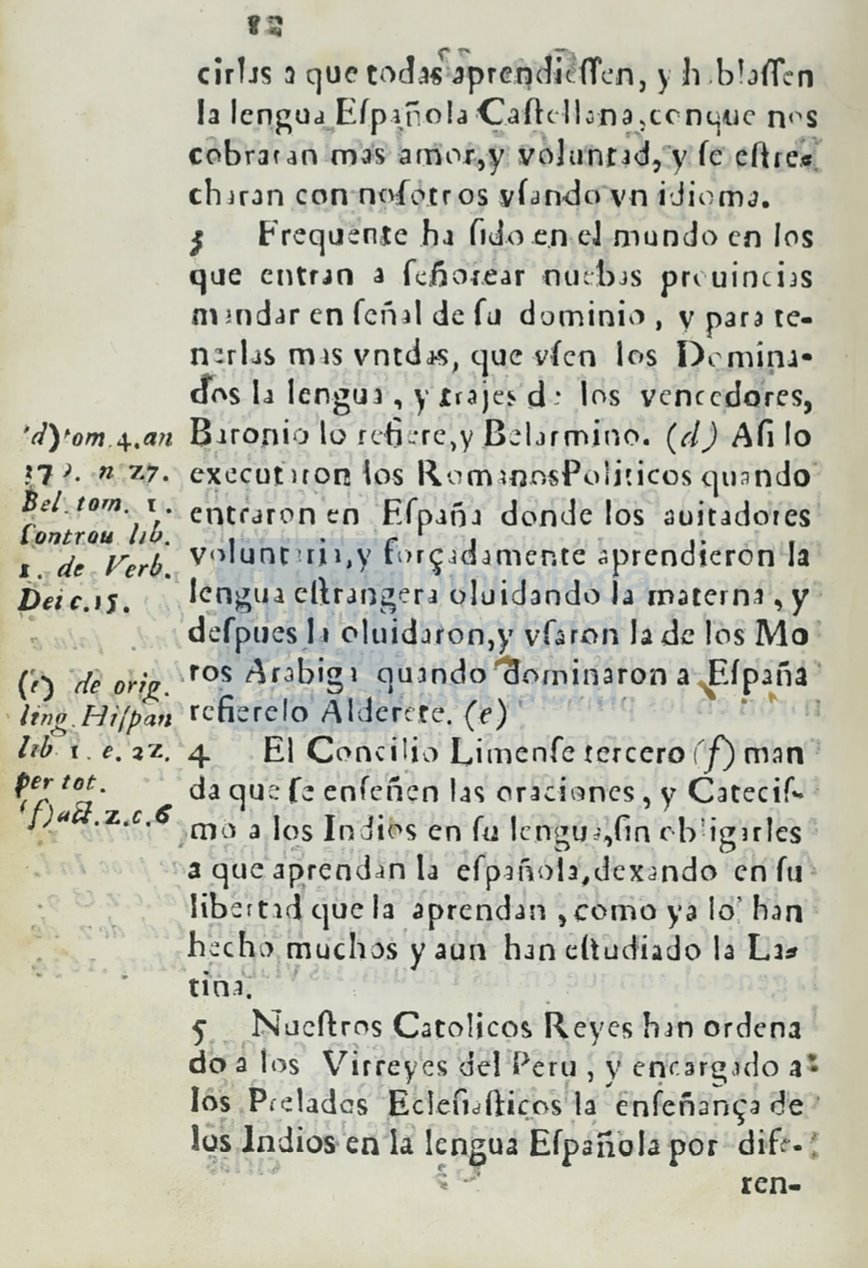 12
cirlas a que todas aprendieſſen, y hablaſſen
la lengua Eſpañola Caſtellana, conque nos
cobraran mas amor, y voluntad, y ſe eſtre-
charan con noſotros vſando vn idioma.
3 Frequente ha ſido en el mundo en los
que entran a ſeñorear nuebas prouincias
mandar en ſeñal de ſu dominio, y para te-
nerlas mas vntdas, que vſen los Domina-
dos la lengua, y trajes de los vencedores,
Baronio lo refiere, y Belarmino. (d) Aſi lo
executaron los Romanos Politicos quando
entraron en Eſpaña donde los auitadores
voluntaria, y forçadamente aprendieron la
lengua eſtrangera oluidando la materna, y
deſpues la oluidaron, y vſaron la de los Mo
ros Arabiga quando dominaron a Eſpaña
refierelo Alderete. (e)
4 El Concilio Limenſe tercero (f) man
da que ſe enſeñen las oraciones, y Cateciſ-
mo a los Indios en ſu lengua, ſin obligarles
a que aprendan la eſpañola, dexando en ſu
libertad que la aprendan, como ya lo han
hecho muchos y aun han eſtudiado la La-
tina.
5 Nueſtros Catolicos Reyes han ordena
do a los Virreyes del Peru, y encargado a
los Prelados Ecleſiaſticos la enſeñança de
los Indios en la lengua Eſpañola por dife-
ren-
(d) tom. 4. an
n 27.
Bel. tom. 1.
Controu lib.
1. de Verb.
Dei c. 15.
(e) de orig.
ling. Hiſpan
lib 1. c. 22.
per tot.
(f) act. 2. c. 6